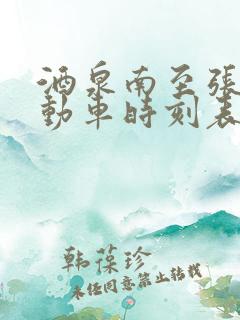 酒泉南至张
動車時刻表
韩葆珍
未经同意禁止转载